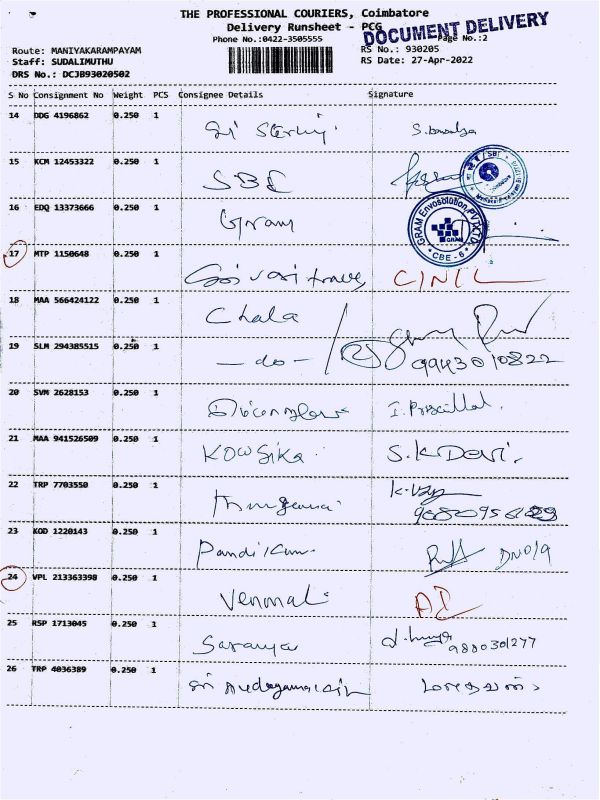 THE PROFESSIONAL COURIERS, Coimbatore
Delivery Runsheet - PCG
DOCUMENT DELIVERY
Phone No.:0422-3505555
Page No.:2
Route: MANIYAKARAMPAYAM
RS No.: 930205
Staff: SUDALIMUTHU
RS Date: 27-Apr-2022
DRS No.: DCJB93020502
S No Consignment No Weight PCS Consignee Details Signature
14 DDG 4196862 0.250 1 Sri
15 KCM 12453322 0.250 1 SBI
SBI
16 EDQ 13373666 0.250 1 Gram
GRAM Envosolution PVT LTD
GRAM
CBE - 6
17 MTP 1150648 0.250 1
18 MAA 566424122 0.250 1 Chala
19 SLM 294385515 0.250 1 - do - 9943010822
20 SVM 2628153 0.250 1 I. Priscillal.
21 MAA 941526509 0.250 1 Kowsika S.K Devi.
22 TRP 7703550 0.250 1
23 KOD 1220143 0.250 1 Pandi
24 VPL 213363398 0.250 1
25 RSP 1713045 0.250 1 Saranya 9880301277
26 TRP 4036389 0.250 1 Sri